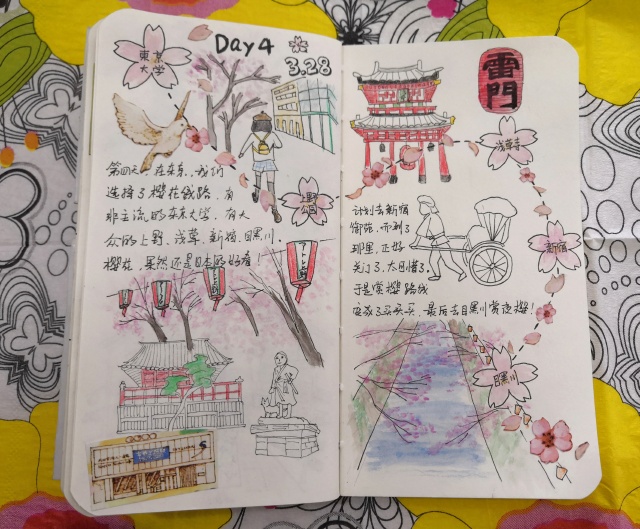 東京
大学
Day 4
3.28
第四天，在东京，我们
选择了樱花线路，有
非主流的东京大学，有大
众的上野、浅草、新宿、目黑川。
樱花，果然还是日本的好看！
上野
公园
雷門
浅草寺
计划去新宿
御苑，而到了
那里，正好
关门了，太可惜了，
于是赏樱路线
变成了买买买，最后去目黑川赏夜樱！
新宿
目黑川